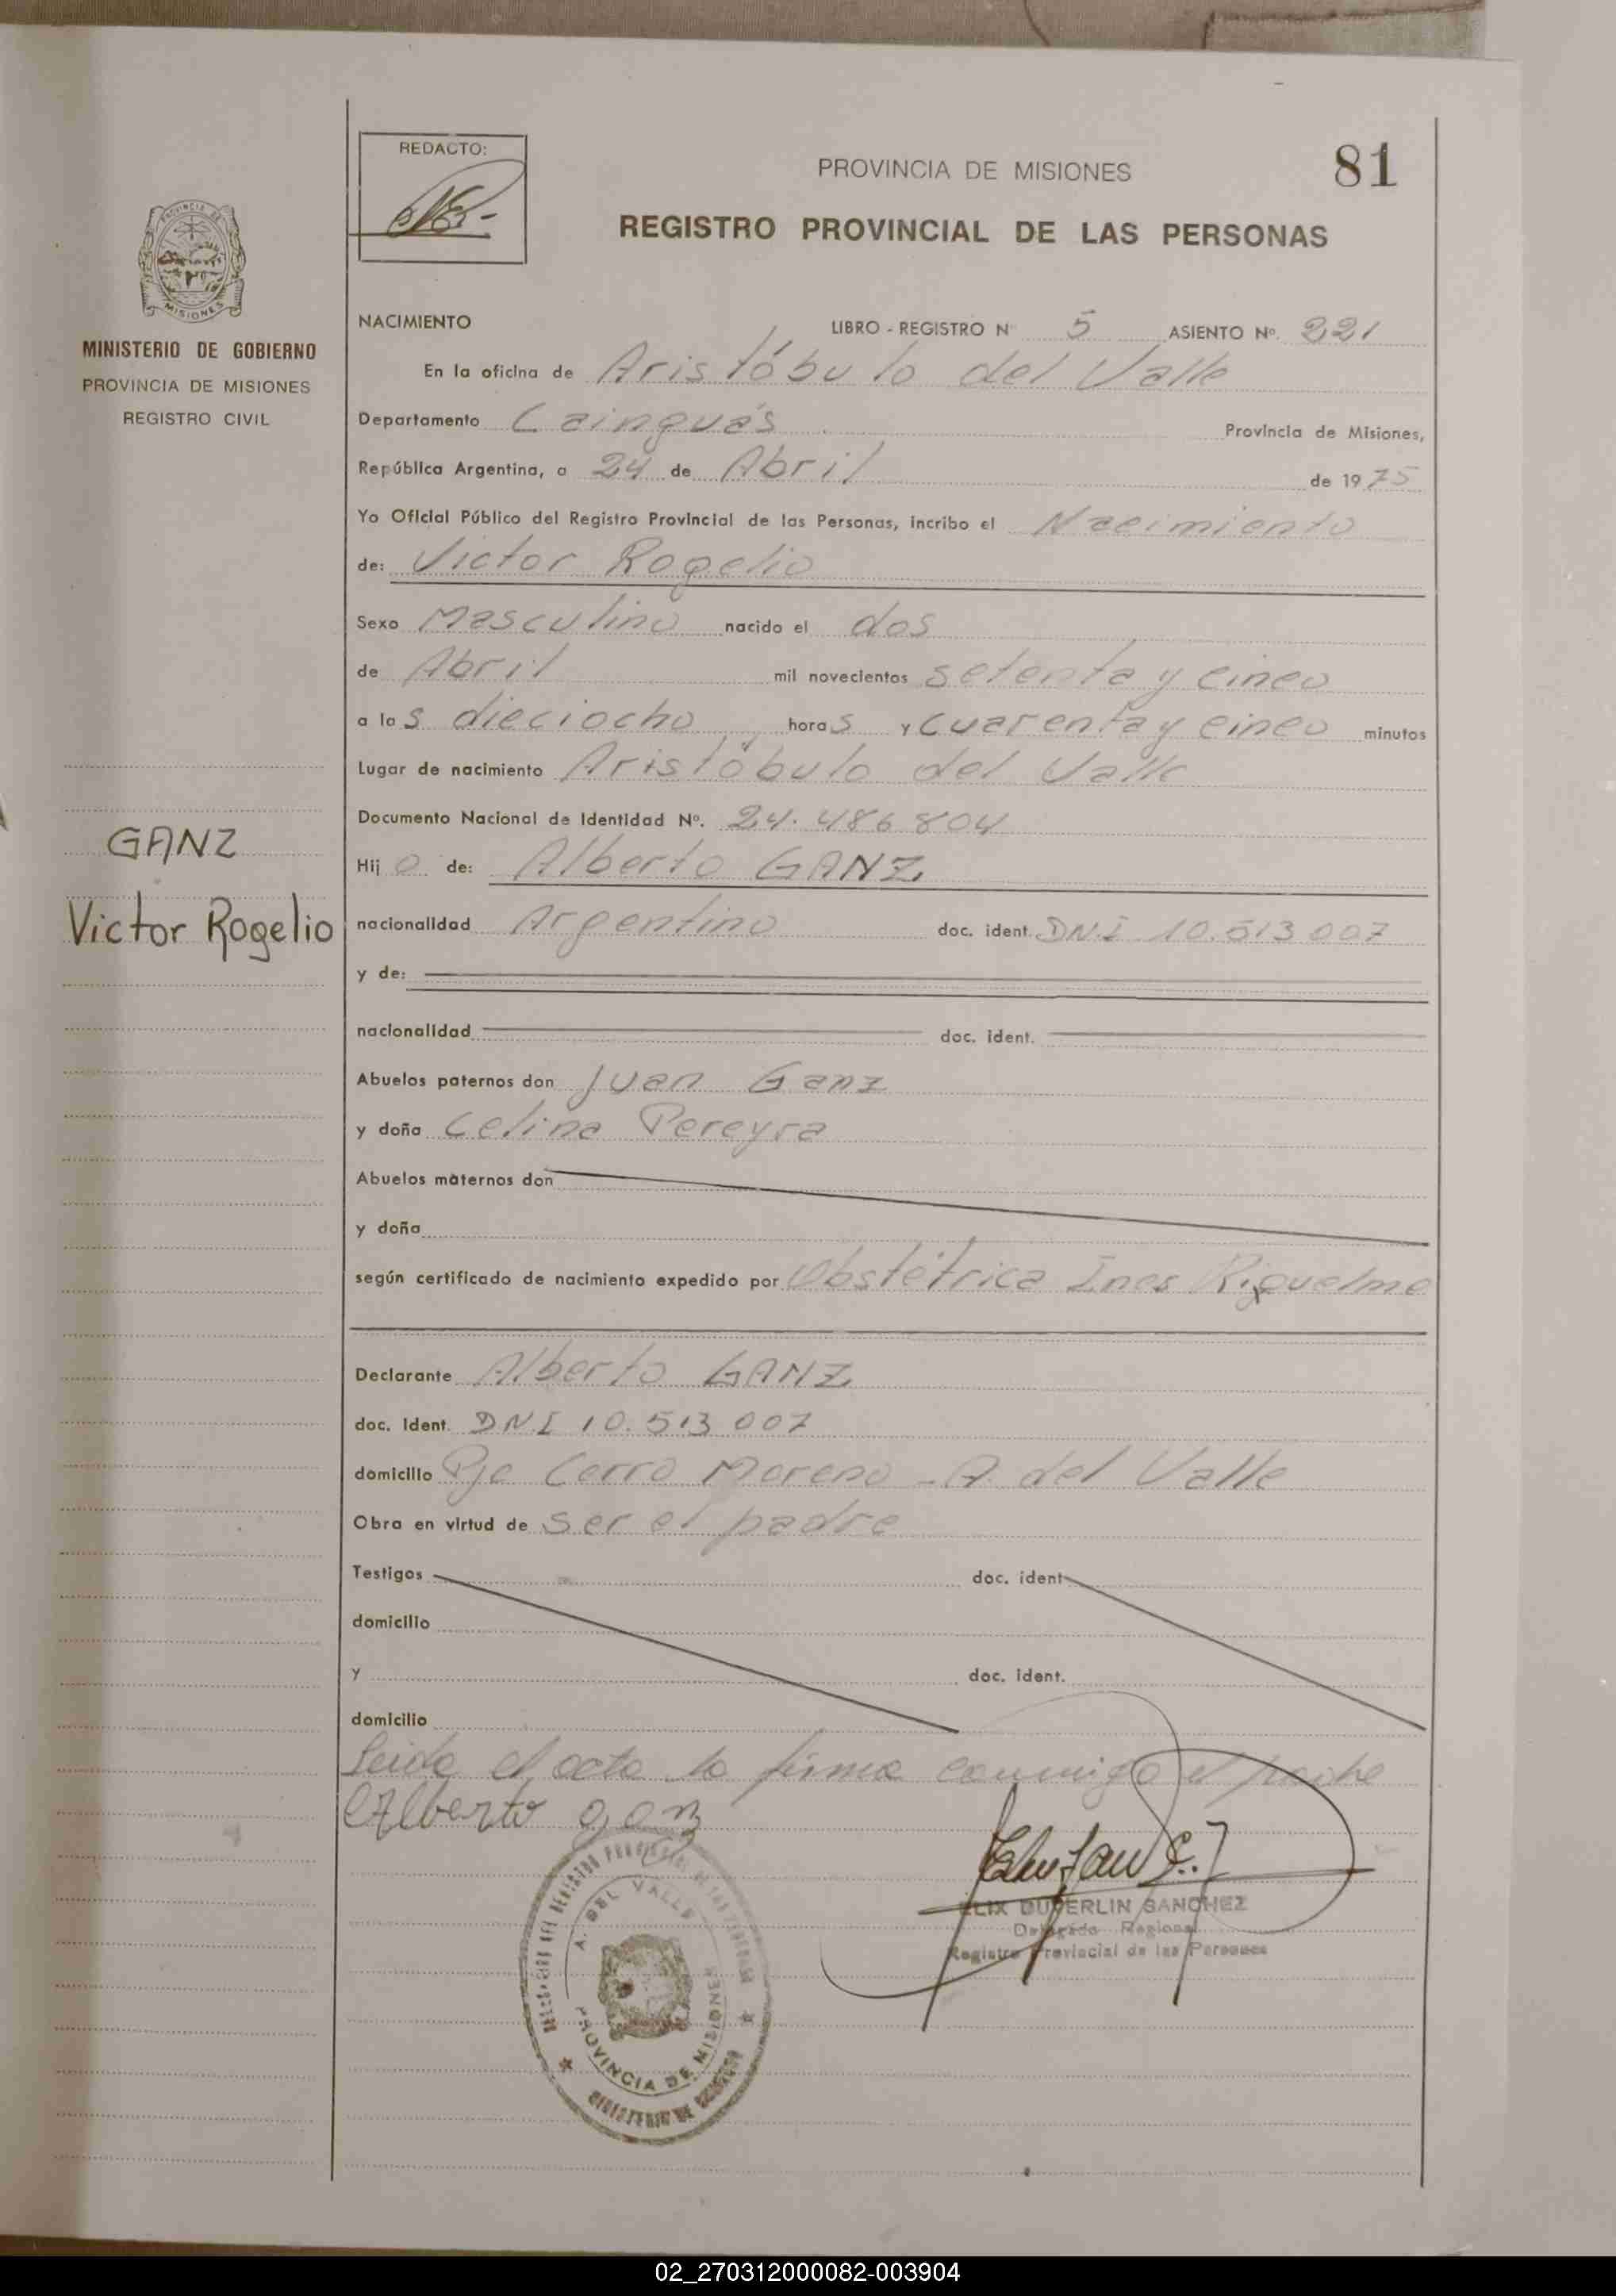 REDACTO:
PROVINCIA DE MISIONES
81
REGISTRO PROVINCIAL DE LAS PERSONAS
PROVINCIA DE
MISIONES
MINISTERIO DE GOBIERNO
PROVINCIA DE MISIONES
REGISTRO CIVIL
NACIMIENTO
LIBRO - REGISTRO Nº 5 ASIENTO Nº. 221
En la oficina de Aristóbulo del Valle
Departamento Cainguás Provincia de Misiones,
República Argentina, a 24 de Abril de 1975
Yo Oficial Público del Registro Provincial de las Personas, incribo el Nacimiento
de: Victor Rogelio
Sexo Masculino nacido el dos
de Abril mil novecientos setenta y cinco
a las dieciocho horas y cuarenta y cinco minutos
Lugar de nacimiento Aristóbulo del Valle
Documento Nacional de Identidad Nº. 24.486804
Hijo de: Alberto GANZ
GANZ
Victor Rogelio
nacionalidad Argentino doc. ident. DN.I 10.513007
y de:
nacionalidad doc. ident.
Abuelos paternos don Juan Ganz
y doña Celina Pereyra
Abuelos maternos don
y doña
según certificado de nacimiento expedido por Obstétrica Ines Riquelme
Declarante Alberto GANZ
doc. ident. DN.I 10.513007
domicilio Pje Cerro Moreno - A. del Valle
Obra en virtud de ser el padre
Testigos doc. ident
domicilio
y doc. ident.
domicilio
Leida el acta la firma conmigo el padre
Alberto ganz
A. DEL VALLE
PROVINCIA DE MISIONES
MINISTERIO DE GOBIERNO
ELIX DUPERLIN SANCHEZ
Delegado Regional
Registro Provincial de las Personas
02_270312000082-003904